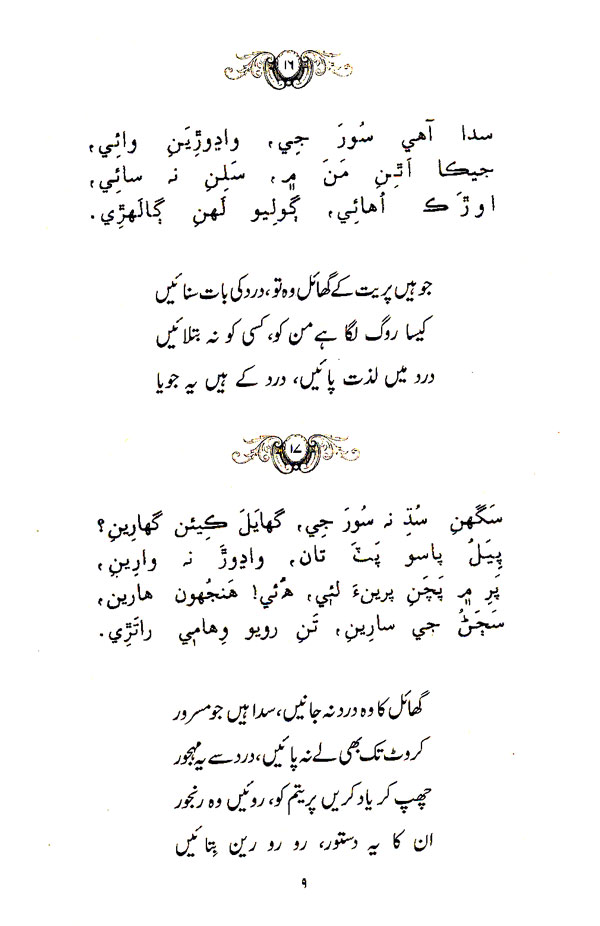 ١٦
سدا آهي سُورَ جِي، واڍوڙِيَنِ وائِي،
جيڪا اَٿِنِ مَنَ ۾، سَلِنِ نہ سائِي،
اوڙَڪ اُهائِي، ڳولِيو لَهنِ ڳالَهڙِي.
جو ہیں پریت کے گھائل وہ تو، درد کی بات سنائیں
کیسا روگ لگا ہے من کو، کسی کو نہ بتلائیں
درد میں لذت پائیں، درد کے ہیں یہ جویا
١٧
سَگَهنِ سُڌِ نہ سُورَ جِي، گهايَلَ ڪِيئن گهارِينِ؟
پِيَلُ پاسو پَٽَ تان، واڍوڙَ نہ وارِينِ،
پَرِ ۾ پَچَنِ پرينءَ لئِي، هُئي! هَنجُهون هارين،
سَڄَڻُ جي سارِينِ، تَنِ رويو وِهامي راتَڙِي.
گھائل کا وہ درد نہ جانیں، سدا ہیں جو مسرور
کروٹ تک بھی لے نہ پائیں، درد سے یہ مہجور
چھپ کر یاد کریں پریتم کو، روئیں وہ رنجور
ان کا یہ دستور، رو رو رین بِتائیں
۹